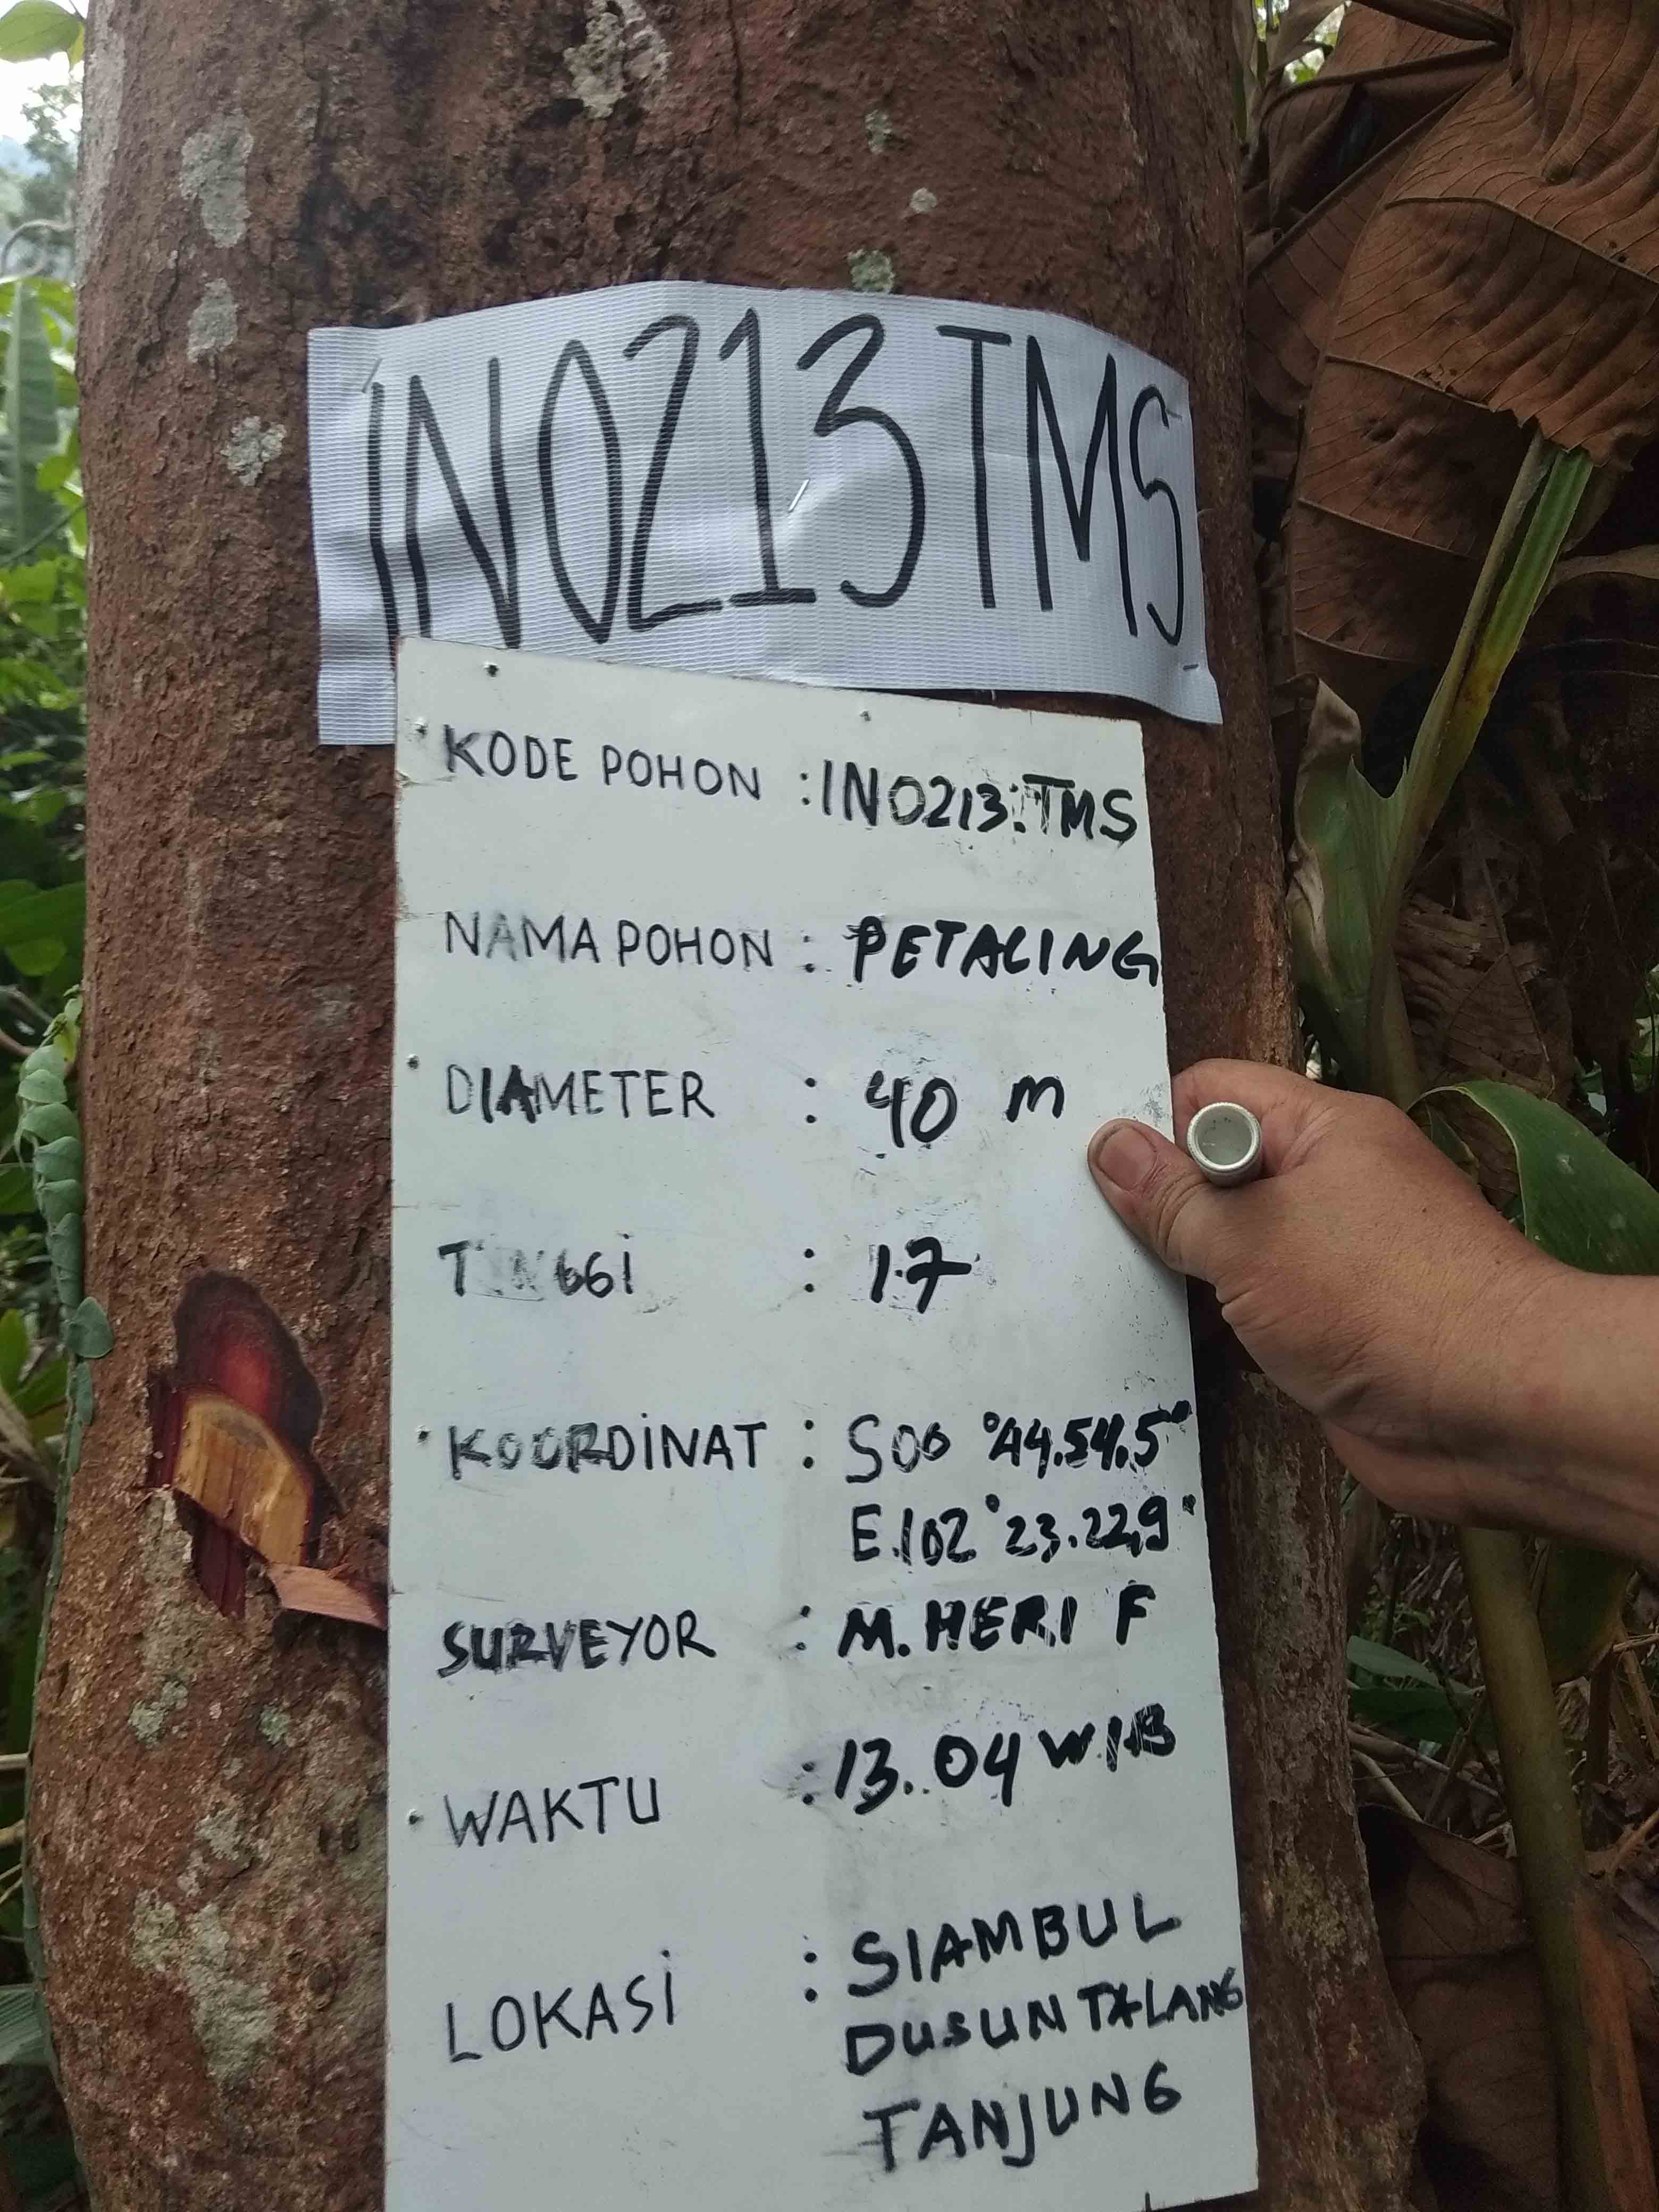 INO213TMS
KODE POHON : INO213.TMS
NAMA POHON : PETALING
DIAMETER : 40 m
TINGGI : 17
KOORDINAT : S00 °44.54.5"
E.102°23.22,9"
SURVEYOR : M. HERI F
WAKTU : 13.04 WIB
LOKASI : SIAMBUL
DUSUN TALANG
TANJUNG